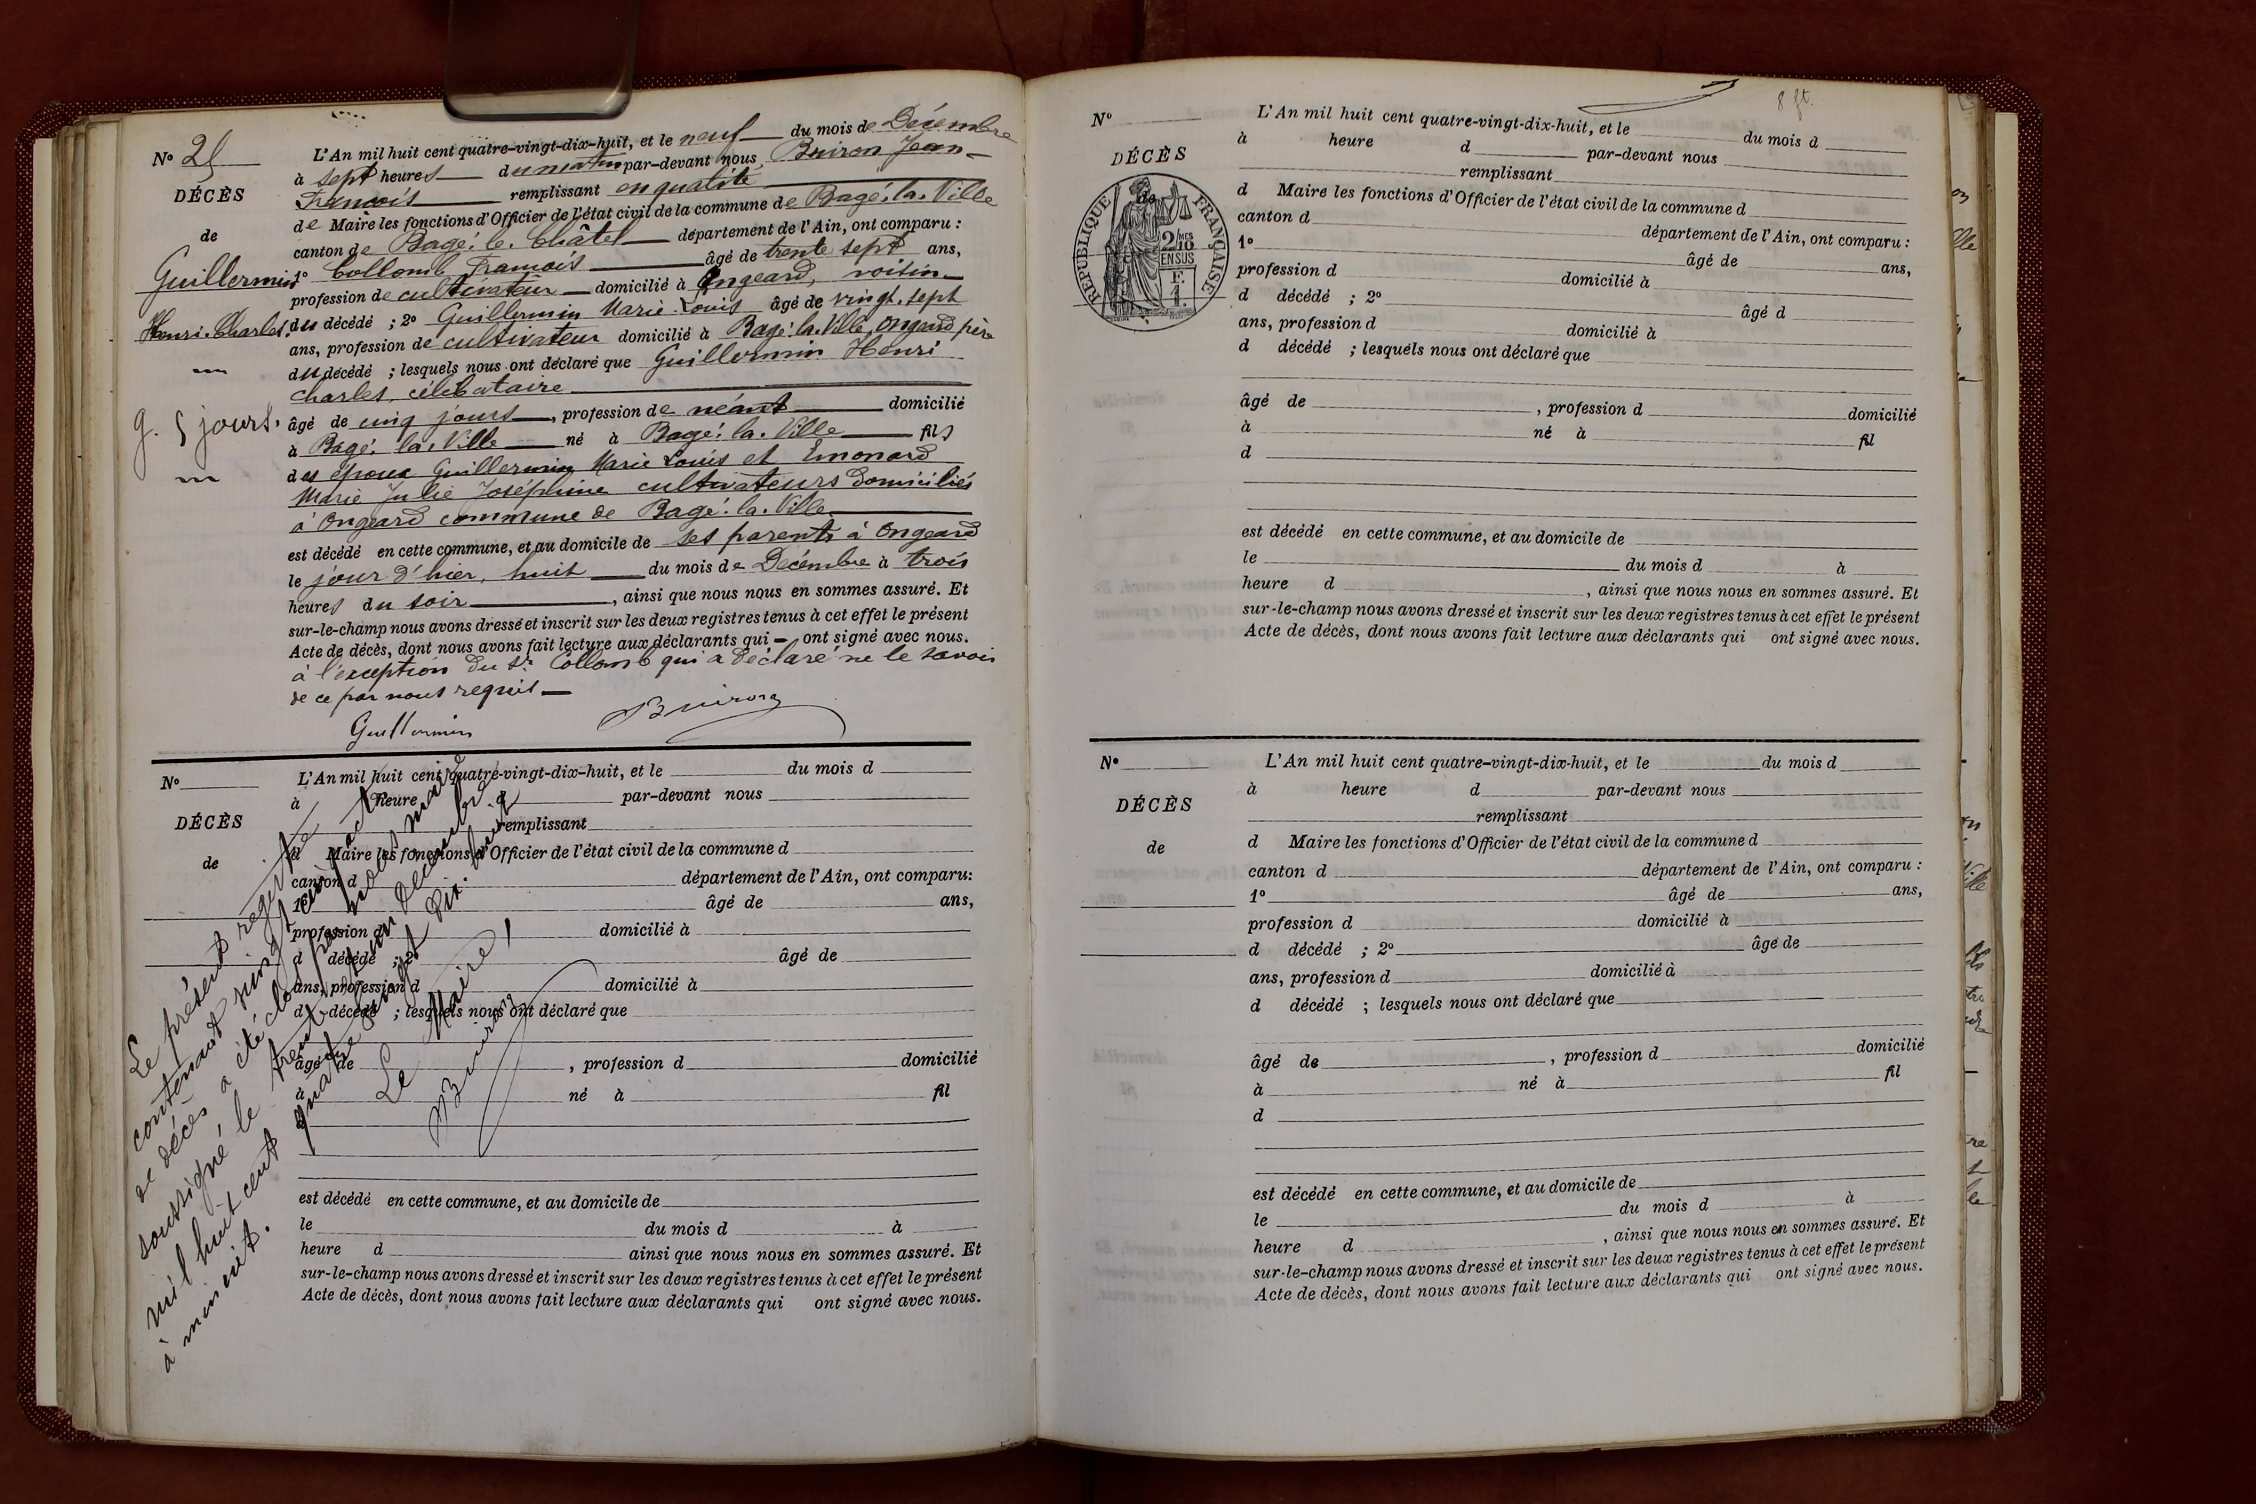 N° 25
DÉCÈS
de
Guillermin
Henri-Charles.
g. 5 jours.
L'An mil huit cent quatre-vingt-dix-huit, et le neuf du mois de Décembre
à sept heures du matin par-devant nous Buiron Jean-
François remplissant en qualité
de Maire les fonctions d'Officier de l'état civil de la commune de Bagé-la-Ville
canton de Bagé-le-Châtel département de l'Ain, ont comparu :
1° Collomb François âgé de trente sept ans,
profession de cultivateur domicilié à Ongeard, voisin
du décédé ; 2° Guillermin Marie-Louis âgé de vingt-sept
ans, profession de cultivateur domicilié à Bagé-la-Ville, Ongeard père
du décédé ; lesquels nous ont déclaré que Guillermin Henri
Charles, célibataire
âgé de cinq jours, profession de néant domicilié
à Bagé-la-Ville né à Bagé-la-Ville fils
des époux Guillermin Marie Louis et Emonard
Marie Julie Joséphine cultivateurs domiciliés
à Ongeard commune de Bagé-la-Ville
est décédé en cette commune, et au domicile de ses parents à Ongeard
le jour d'hier, huit du mois de Décembre à trois
heures du soir, ainsi que nous nous en sommes assuré. Et
sur-le-champ nous avons dressé et inscrit sur les deux registres tenus à cet effet le présent
Acte de décès, dont nous avons fait lecture aux déclarants qui — ont signé avec nous.
à l'exception du sr Collomb qui a déclaré ne le savoir
de ce par nous requis
Guillermin Buiron
N°
DÉCÈS
de
L'An mil huit cent quatre-vingt-dix-huit, et le du mois d
à heure d par-devant nous
remplissant
d Maire les fonctions d'Officier de l'état civil de la commune d
canton d département de l'Ain, ont comparu:
1° âgé de ans,
profession d domicilié à
d décédé ; 2° âgé de
ans, profession d domicilié à
d décédé ; lesquels nous ont déclaré que
âgé de , profession d domicilié
à né à fil
d
est décédé en cette commune, et au domicile de
le du mois d à
heure d ainsi que nous nous en sommes assuré. Et
sur-le-champ nous avons dressé et inscrit sur les deux registres tenus à cet effet le présent
Acte de décès, dont nous avons fait lecture aux déclarants qui ont signé avec nous.
Le présent registre
contenant vingt cinq actes
de décès a été clos par nous maire
soussigné, le trente un Décembre
mil huit cent quatre vingt dix-huit
à minuit.
Le Maire,
Buiron
8 ft.
N°
DÉCÈS
de
RÉPUBLIQUE FRANÇAISE
2/10 MES
EN SUS
F.
1.
L'An mil huit cent quatre-vingt-dix-huit, et le du mois d
à heure d par-devant nous
remplissant
d Maire les fonctions d'Officier de l'état civil de la commune d
canton d département de l'Ain, ont comparu :
1° âgé de ans,
profession d domicilié à
d décédé ; 2° âgé d
ans, profession d domicilié à
d décédé ; lesquels nous ont déclaré que
âgé de , profession d domicilié
à né à fil
d
est décédé en cette commune, et au domicile de
le du mois d à
heure d , ainsi que nous nous en sommes assuré. Et
sur-le-champ nous avons dressé et inscrit sur les deux registres tenus à cet effet le présent
Acte de décès, dont nous avons fait lecture aux déclarants qui ont signé avec nous.
N°
DÉCÈS
de
L'An mil huit cent quatre-vingt-dix-huit, et le du mois d
à heure d par-devant nous
remplissant
d Maire les fonctions d'Officier de l'état civil de la commune d
canton d département de l'Ain, ont comparu :
1° âgé de ans,
profession d domicilié à
d décédé ; 2° âgé de
ans, profession d domicilié à
d décédé ; lesquels nous ont déclaré que
âgé de , profession d domicilié
à né à fil
d
est décédé en cette commune, et au domicile de
le du mois d à
heure d , ainsi que nous nous en sommes assuré. Et
sur-le-champ nous avons dressé et inscrit sur les deux registres tenus à cet effet le présent
Acte de décès, dont nous avons fait lecture aux déclarants qui ont signé avec nous.